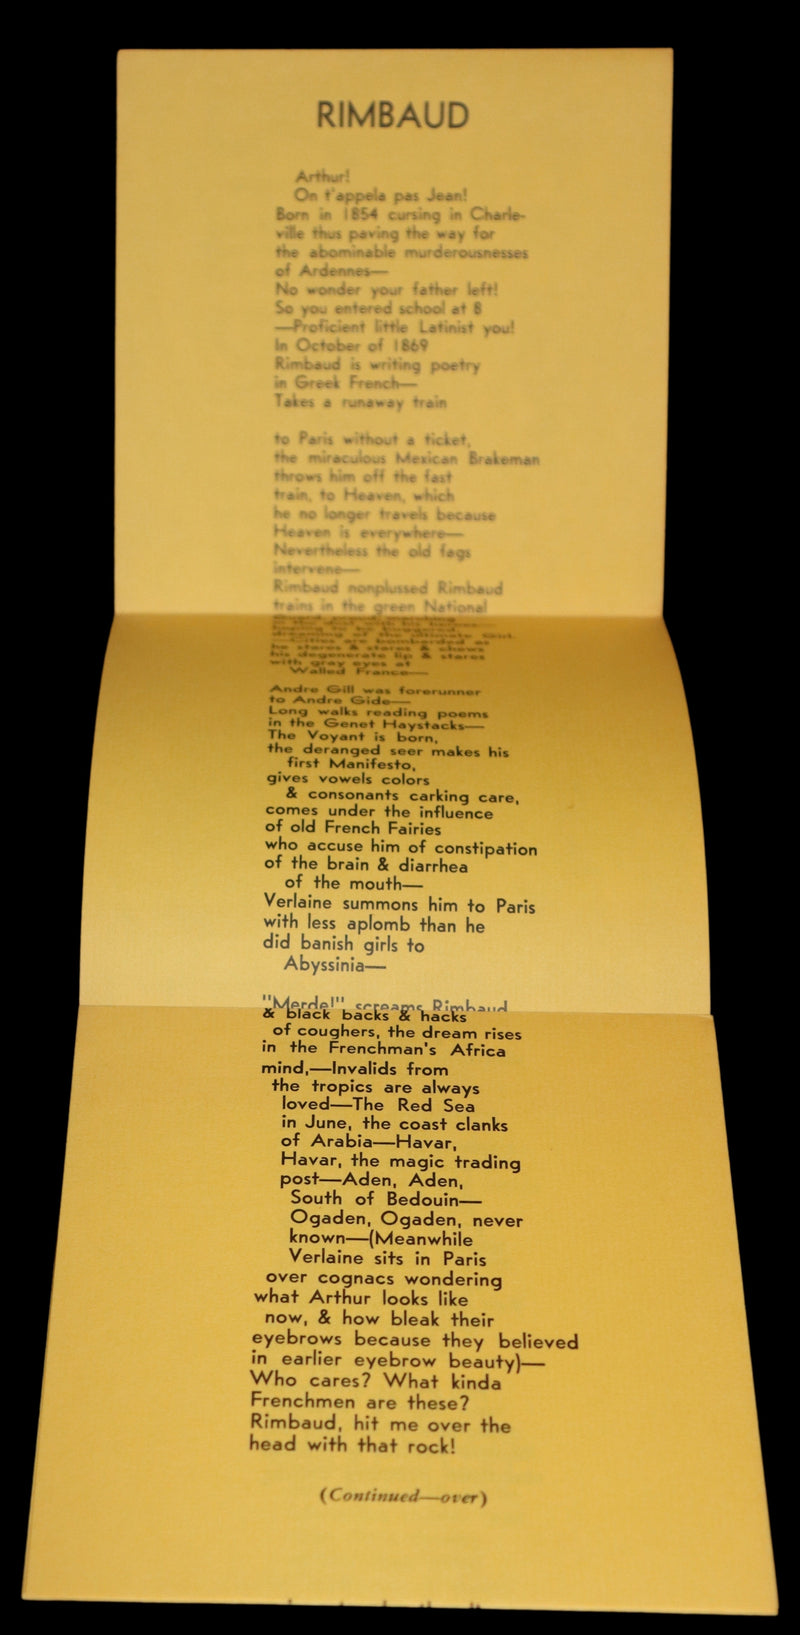 RIMBAUD
Arthur!
On t'appela pas Jean!
Born in 1854 cursing in Charle-
ville thus paving the way for
the abominable murderousnesses
of Ardennes—
No wonder your father left!
So you entered school at 8
—Proficient little Latinist you!
In October of 1869
Rimbaud is writing poetry
in Greek French—
Takes a runaway train
to Paris without a ticket,
the miraculous Mexican Brakeman
throws him off the fast
train, to Heaven, which
he no longer travels because
Heaven is everywhere—
Nevertheless the old fags
intervene—
Rimbaud nonplussed Rimbaud
trains in the green National
dreaming of the ultimate Girl.
—Cities are bombarded as
he stares & stares & chews
his degenerate lip & stares
with gray eyes at
Walled France—
Andre Gill was forerunner
to Andre Gide—
Long walks reading poems
in the Genet Haystacks—
The Voyant is born,
the deranged seer makes his
first Manifesto,
gives vowels colors
& consonants carking care,
comes under the influence
of old French Fairies
who accuse him of constipation
of the brain & diarrhea
of the mouth—
Verlaine summons him to Paris
with less aplomb than he
did banish girls to
Abyssinia—
"Merde!" screams Rimbaud
& black backs & hacks
of coughers, the dream rises
in the Frenchman's Africa
mind,—Invalids from
the tropics are always
loved—The Red Sea
in June, the coast clanks
of Arabia—Havar,
Havar, the magic trading
post—Aden, Aden,
South of Bedouin—
Ogaden, Ogaden, never
known—(Meanwhile
Verlaine sits in Paris
over cognacs wondering
what Arthur looks like
now, & how bleak their
eyebrows because they believed
in earlier eyebrow beauty)—
Who cares? What kinda
Frenchmen are these?
Rimbaud, hit me over the
head with that rock!
(Continued—over)